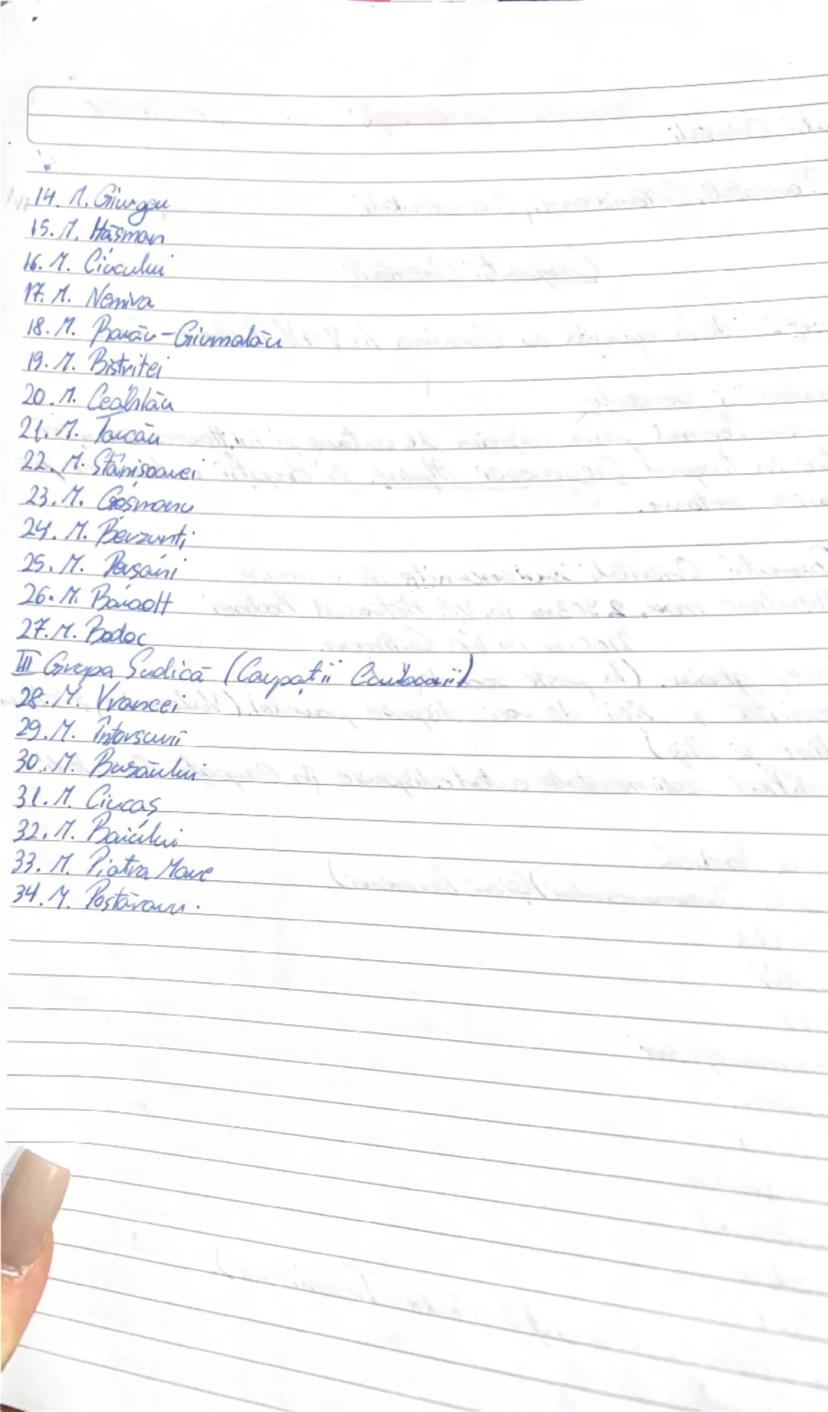 14. M. Giurgeu
15. M. Hăsman
16. M. Ciucului
17. M. Nemira
18. M. Rarău-Giumalău
19. M. Bistritei
20. M. Ceahlău
21. M. Tarcău
22. M. Stânisoarei
23. M. Gosmanu
24. M. Berzunți
25. M. Perșani
26. M. Baraolt
27. M. Bodoc
III Grupa Sudică (Carpații Curburii)
28. M. Vrancei
29. M. Întorsurii
30. M. Buzăului
31. M. Ciucaș
32. M. Baiului
33. M. Piatra Mare
34. M. Postăvaru.